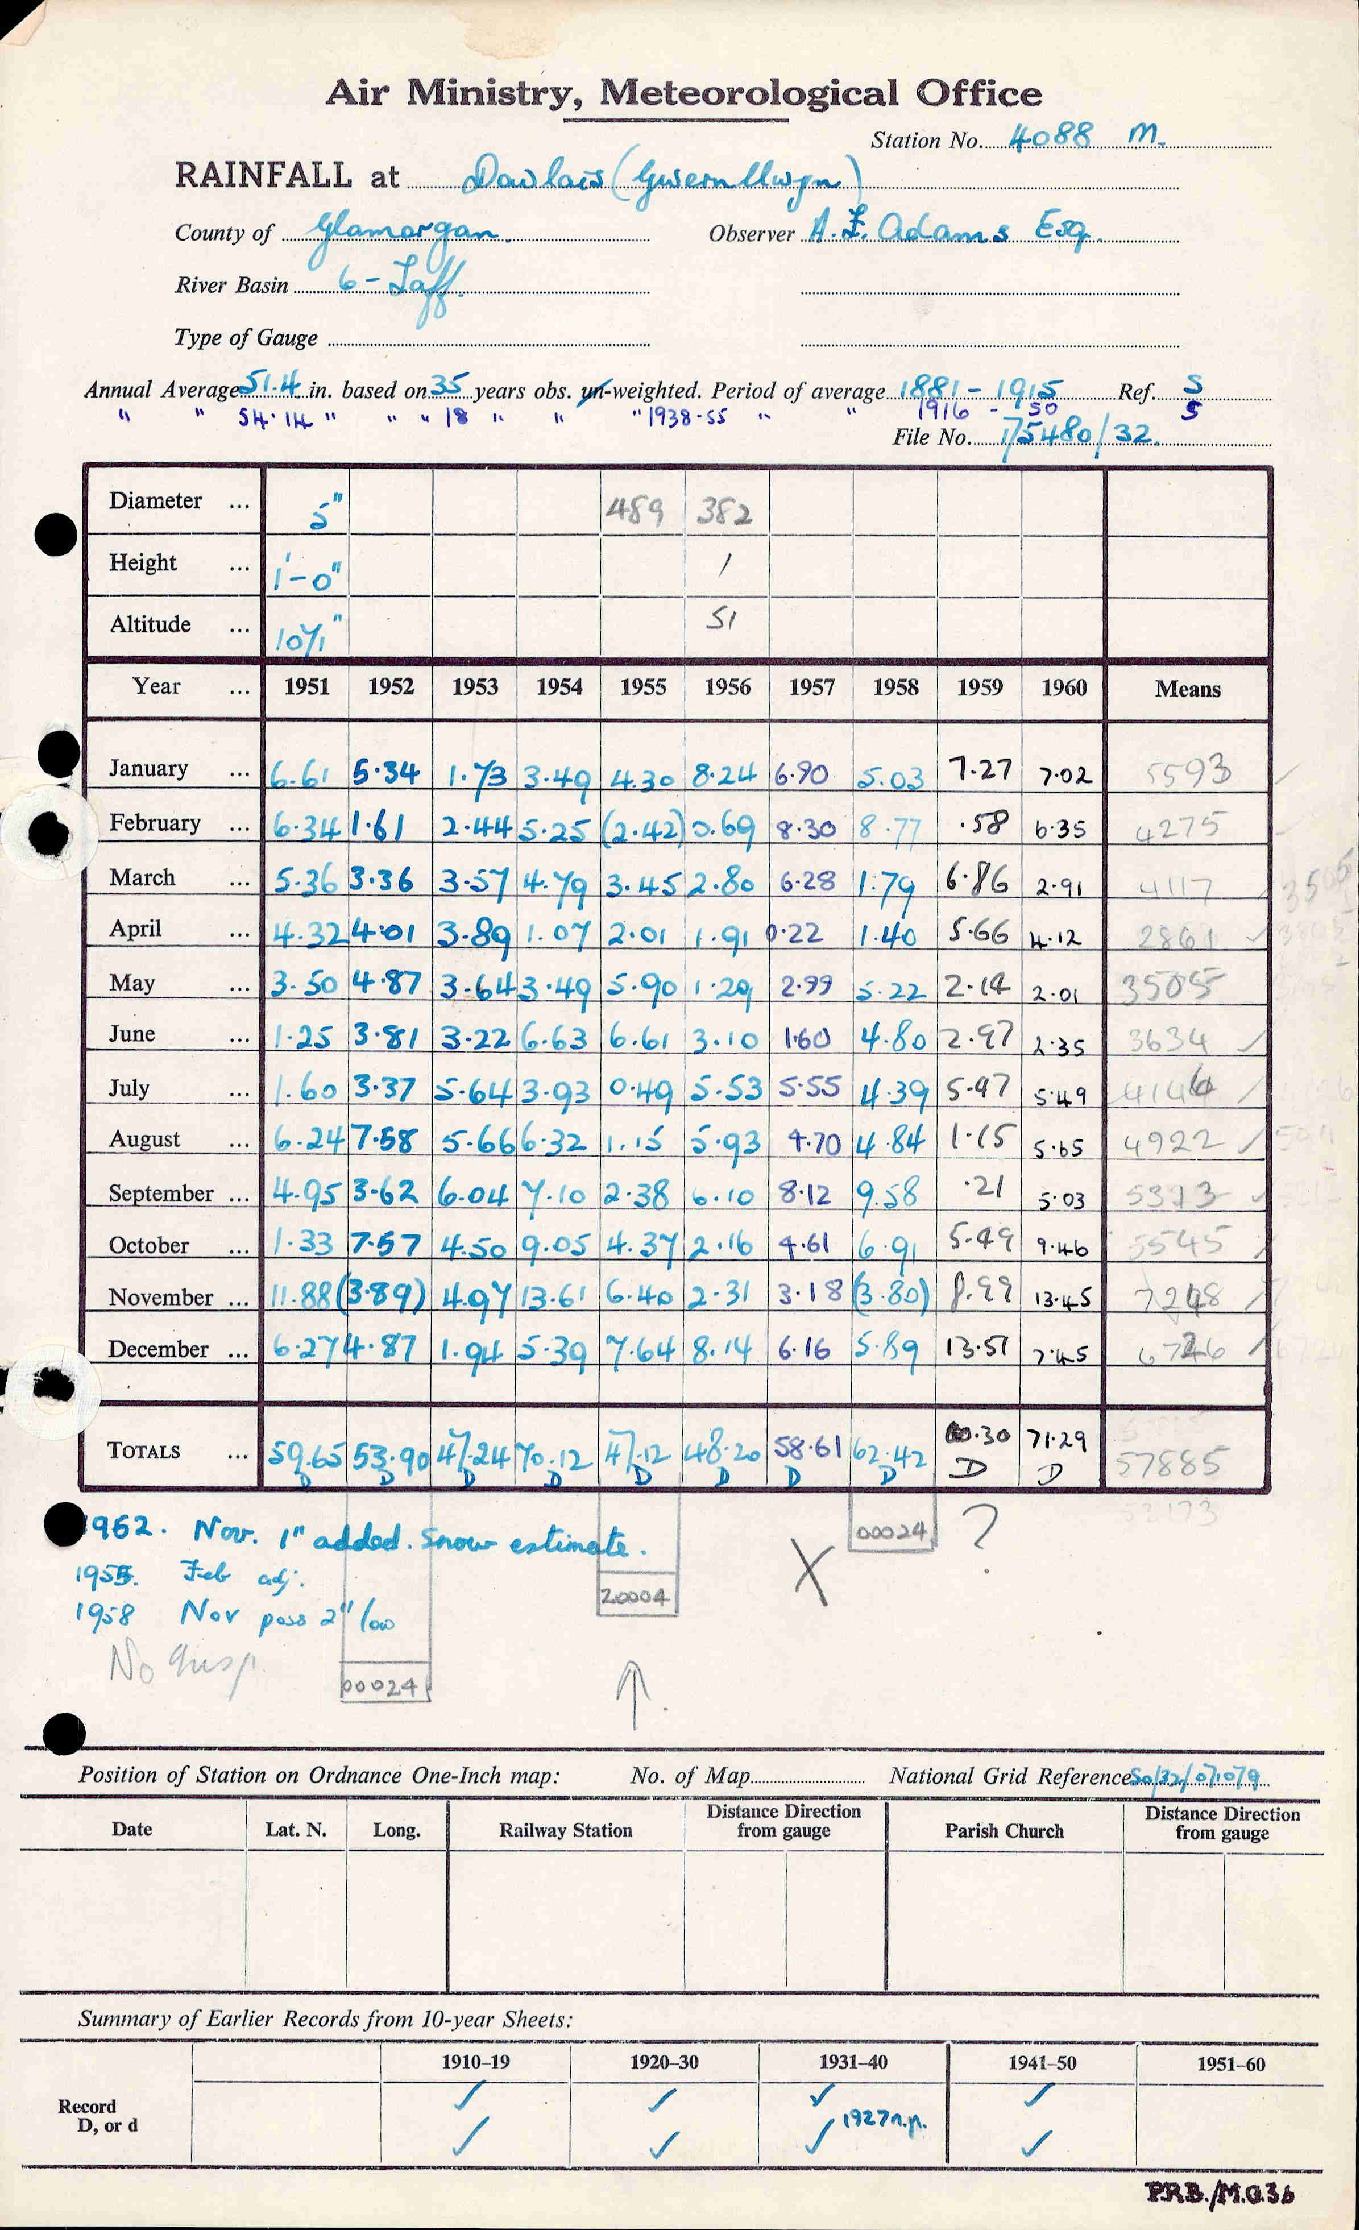 Air Ministry, Meteorological Office
Station No. 4088 M.
RAINFALL at Dowlais (Gwernllwyn)
County of Glamorgan. Observer A. E. Adams Esq.
River Basin 6 - Taff.
Type of Gauge
Annual Average 51.4 in. based on 35 years obs. un-weighted. Period of average 1881 - 1915 Ref. S
" " 54.14 " " " 18 " " "1938-55 " " 1916 - 50 S
File No. 175480/32.
Diameter ... 5" 489 382
Height ... 1'-0" 1
Altitude ... 1071" 51
Year ... 1951 1952 1953 1954 1955 1956 1957 1958 1959 1960 Means
January ... 6.61 5.34 1.73 3.49 4.30 8.24 6.90 5.03 7.27 7.02 5593
February ... 6.34 1.61 2.44 5.25 (2.42) 0.69 8.30 8.77 .58 6.35 4275
March ... 5.36 3.36 3.57 4.79 3.45 2.80 6.28 1.79 6.86 2.91 4117
April ... 4.32 4.01 3.89 1.07 2.01 1.91 0.22 1.40 5.66 4.12 2861
May ... 3.50 4.87 3.64 3.49 5.90 1.29 2.99 5.22 2.14 2.01 3505
June ... 1.25 3.81 3.22 6.63 6.61 3.10 1.60 4.80 2.97 2.35 3634
July ... 1.60 3.37 5.64 3.93 0.49 5.53 5.55 4.39 5.47 5.49 4146
August ... 6.24 7.58 5.66 6.32 1.15 5.93 4.70 4.84 1.15 5.65 4922
September ... 4.95 3.62 6.04 7.10 2.38 6.10 8.12 9.58 .21 5.03 5313
October ... 1.33 7.57 4.50 9.05 4.37 2.16 4.61 6.91 5.49 9.46 5545
November ... 11.88 (3.89) 4.97 13.61 6.40 2.31 3.18 (3.80) 8.99 13.45 7248
December ... 6.27 4.87 1.94 5.39 7.64 8.14 6.16 5.89 13.51 7.45 6726
TOTALS ... 59.65 53.90 47.24 70.12 47.12 48.20 58.61 62.42 60.30 71.29 57885
D D D D D D D D D D
1952. Nov. 1" added. Snow estimate.
00024 ?
X
1955. Feb adj.
20004
1958 Nov poss 2" low
No insp.
00024
Position of Station on Ordnance One-Inch map: No. of Map National Grid Reference SO/32/071079
Date Lat. N. Long. Railway Station Distance Direction from gauge Parish Church Distance Direction from gauge
Summary of Earlier Records from 10-year Sheets:
1910–19 1920–30 1931–40 1941–50 1951–60
Record
D, or d
1927 n.p.
P.R.B./M.O.36